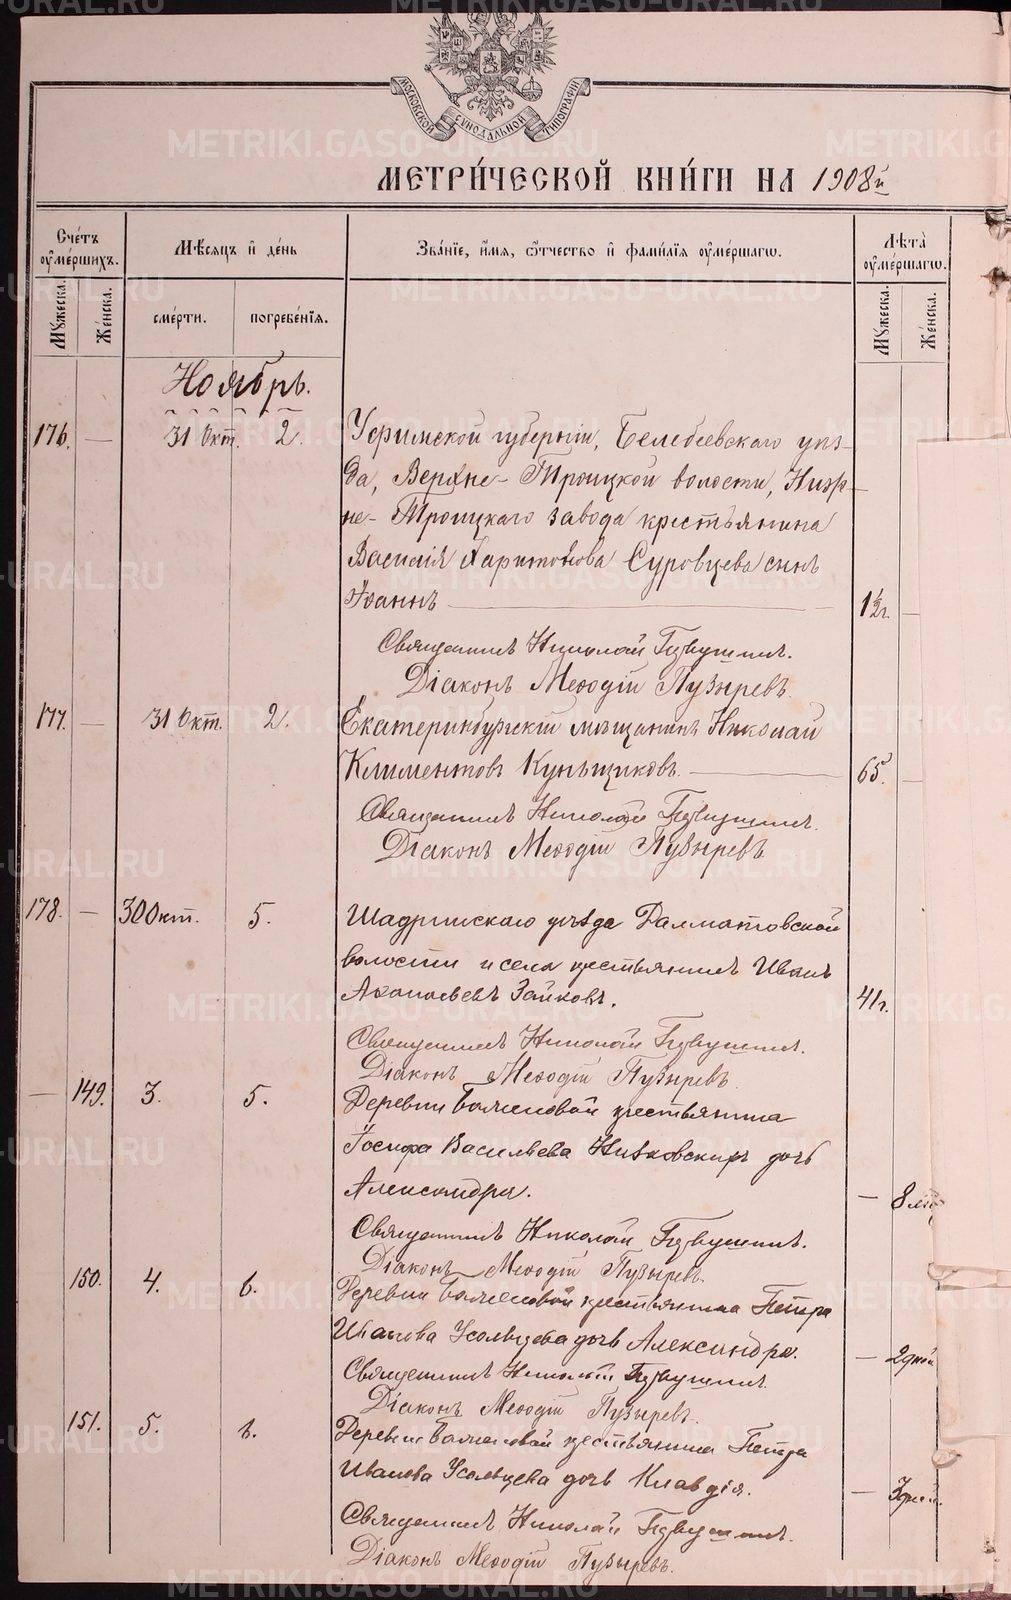 МОСКОВСКОЙ СУНОДАЛЬНОЙ ТИПОГРАФІИ
METRIKI.GASO-URAL.RU
МЕТРИ́ЧЕСКОЙ КНИ́ГИ НА 1908й
Сче́тъ ᲂу҆ме́ршихъ.
Мѣ́сяцъ и҆ де́нь
Зва́нїе, и҆́мя, ѻ҆́тчество и҆ фами́лїя ᲂу҆ме́ршагѡ.
Лѣ́та ᲂу҆ме́ршагѡ.
Мꙋ́жеска.
Же́нска.
сме́рти.
погребе́нїѧ.
Мꙋ́жеска.
Же́нска.
Ноябрь.
176. — 31 Окт. 2. Уфимской губерніи, Белебеевскаго уѣз-
да, Верхне-Троицкой волости, Ниж-
не-Троицкаго завода крестьянина
Василія Харитонова Суровцева сынъ
Іоаннъ — 1½г. —
Священникъ Николай
Діаконъ Меѳодій Пузыревъ.
177. — 31 Окт. 2. Екатеринбургскій мѣщанинъ Николай
Климентовъ Куньщиковъ. — 65. —
Священникъ Николай
Діаконъ Меѳодій Пузыревъ.
178. — 30 Окт. 5. Шадринскаго уѣзда Далматовской
волости и села крестьянинъ Иванъ
Аѳанасьевъ Зайковъ. 41г.
Священникъ Николай
Діаконъ Меѳодій Пузыревъ.
— 149. 3. 5. Деревни крестьянина
Іосифа Васильева дочь
Александра. — 8
Священникъ Николай
Діаконъ Меѳодій Пузыревъ.
150. 4. 6. Деревни крестьянина Петра
Иванова Усольцева дочь Александра. — 2 дней
Священникъ Николай
Діаконъ Меѳодій Пузыревъ.
151. 5. 6. Деревни крестьянина Петра
Иванова Усольцева дочь Клавдія. — 3 дней.
Священникъ Николай
Діаконъ Меѳодій Пузыревъ.